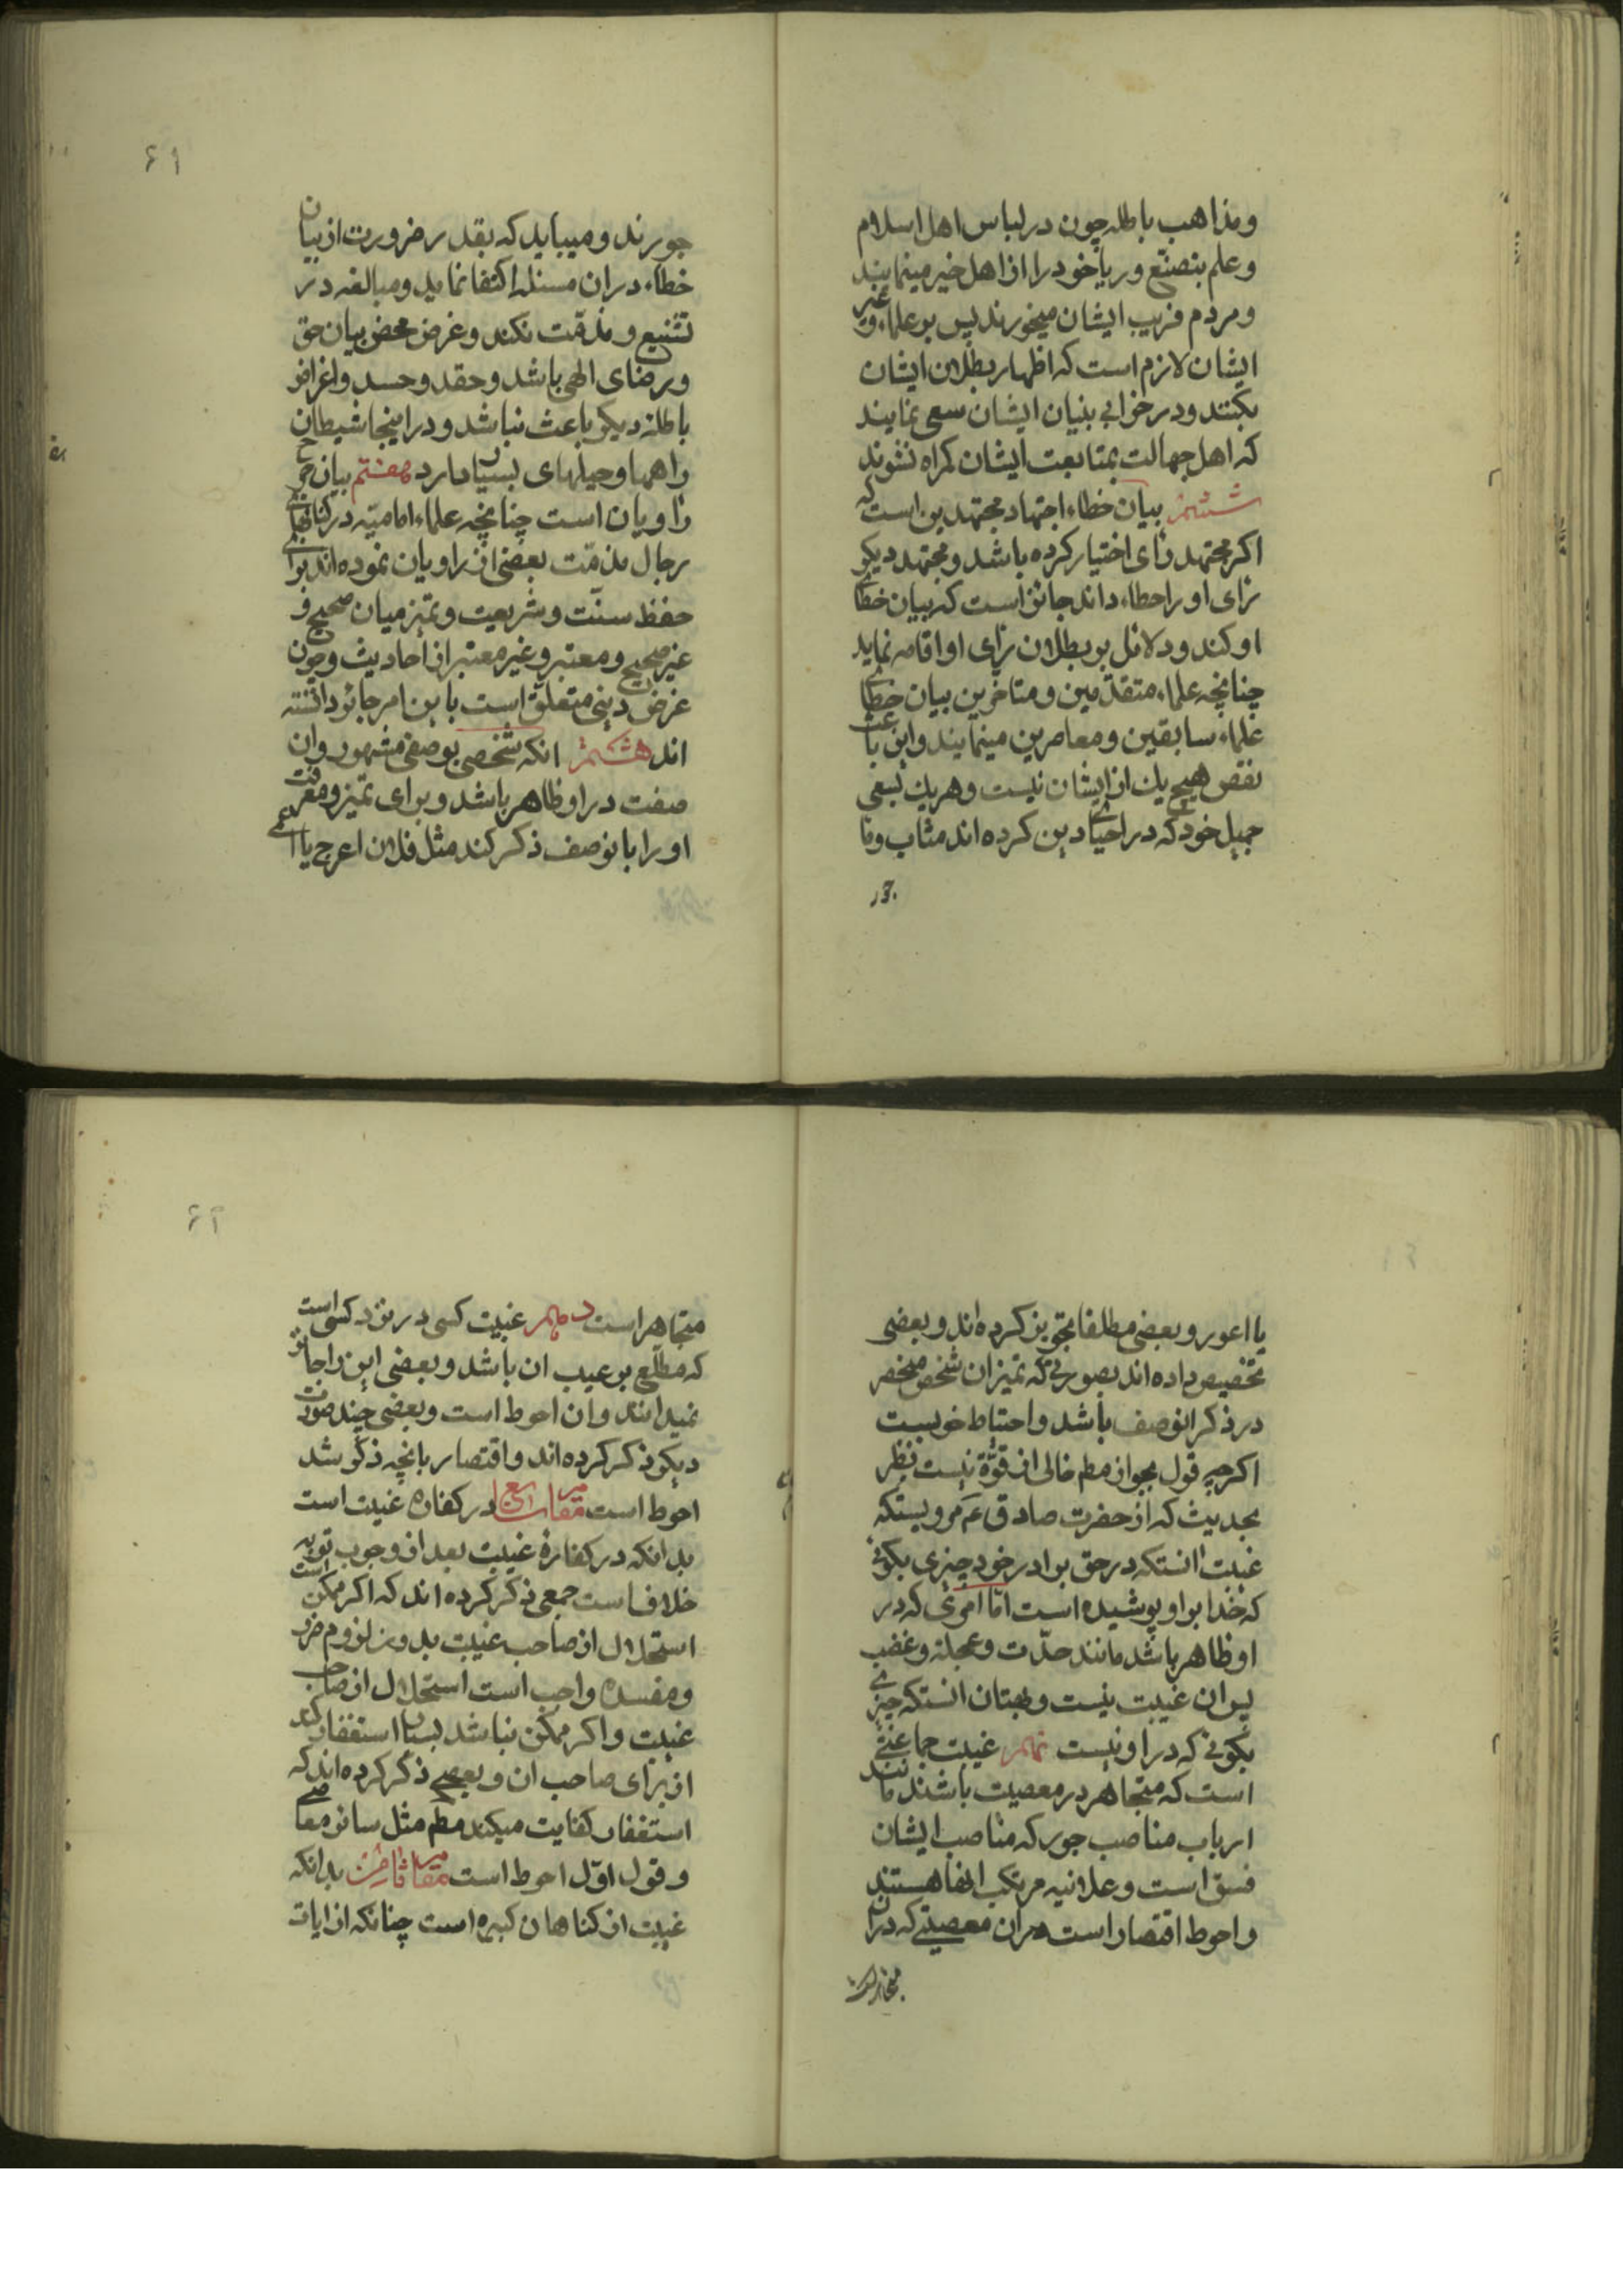 ومذاهب باطله چون در لباس اهل اسلام
و علم بتصنّع و ریا خود را از اهل خیر مینمایند
و مردم فریب ایشان میخورند پس بر علماء و غیر
ایشان لازم است که اظهار بطلان ایشان
بکنند و در خرابی بنیان ایشان سعی نمایند
که اهل جهالت بمتابعت ایشان کمراه نشوند
ششم بیان خطاء اجتهاد مجتهدین است که
اکر مجتهد رای اختیار کرده باشد و مجتهد دیکر
رای او را خطاء داند جائز است که بیان خطای
او کند و دلائل بر بطلان رای او اقامه نماید
چنانچه علماء متقدّمین و متاخرین بیان خطای
علماء سابقین و معاصرین مینمایند و این باعث
نقص هیچ یك از ایشان نیست و هر یك بسعی
جمیل خود که در احیای دین کرده اند مثاب و ما
جر
۶۱
جورند و میباید که بقدر ضرورت از بیان
خطاء در ان مسئله اکتفا نماید و مبالغه در
تشنیع و مذمّت نکند و غرض محض بیان حق
و رضای الهی باشد و حقد و حسد و اغراض
باطله دیکر باعث نباشد و در اینجا شیطان
راهها و حیلهای بسیار دارد هفتم بیان جرح
راویان است چنانچه علماء امامیّه در کتابهای
رجال مذمّت بعضی از راویان نموده اند برای
حفظ سنّت و شریعت و تمیز میان صحیح و
غیر صحیح و معتبر و غیر معتبر از احادیث و چون
غرض دینی متعلّق است باین امر جائز دانسته
اند هشتم انکه شخصی بوصفی مشهور و ان
صفت در او ظاهر باشد و برای تمیز و معرفت
او را بانوصف ذکر کند مثل فلان اعرج یا اعمی
یا اعور و بعضی مطلقا تجویز کرده اند و بعضی
تخصیص داده اند بصورتی که تمیز ان شخص منحصر
در ذکر انوصف باشد و احتیاط خوبست
اکر چه قول بجواز مطم خالی از قوّة نیست نظر
بحدیث که از حضرت صادق ع م مرویستکه
غیبت انستکه در حق برادر خود چیزی بکوئی
که خدا بر او پوشیده است امّا امری که در
او ظاهر باشد مانند حدّت و عجله و غضب
پس ان غیبت نیست و بهتان انستکه چیزی
بکوئی که در او نیست نهم غیبت جماعتی
است که متجاهر در معصیت باشند مانند
ارباب مناصب جور که مناصب ایشان
فسق است و علانیه مرتکب انها هستند
و احوط اقتصار است در ان معصیتی که در ان
متجاهر است
۶۲
متجاهر است دهم غیبت کسی در نزد کسی است
که مطّلع بر عیب ان باشد و بعضی این را جائز
نمیدانند و ان احوط است و بعضی چند صورت
دیکر ذکر کرده اند و اقتصار بانچه ذکر شد
احوط است مقام رابع در کفاره غیبت است
بدانکه در کفارهٔ غیبت بعد از وجوب توبه
خلاف است جمعی ذکر کرده اند که اکر ممکن است
استحلال از صاحب غیبت بدون لزوم ضرر
و مفسده واجب است استحلال از صاحب
غیبت و اکر ممکن نباشد پس استغفار کند
از برای صاحب ان و بعضی ذکر کرده اند که
استغفار کفایت میکند مطم مثل سائر معاصی
و قول اوّل احوط است مقام ثامن بدانکه
غیبت از کناهان کبیره است چنانکه از ایات